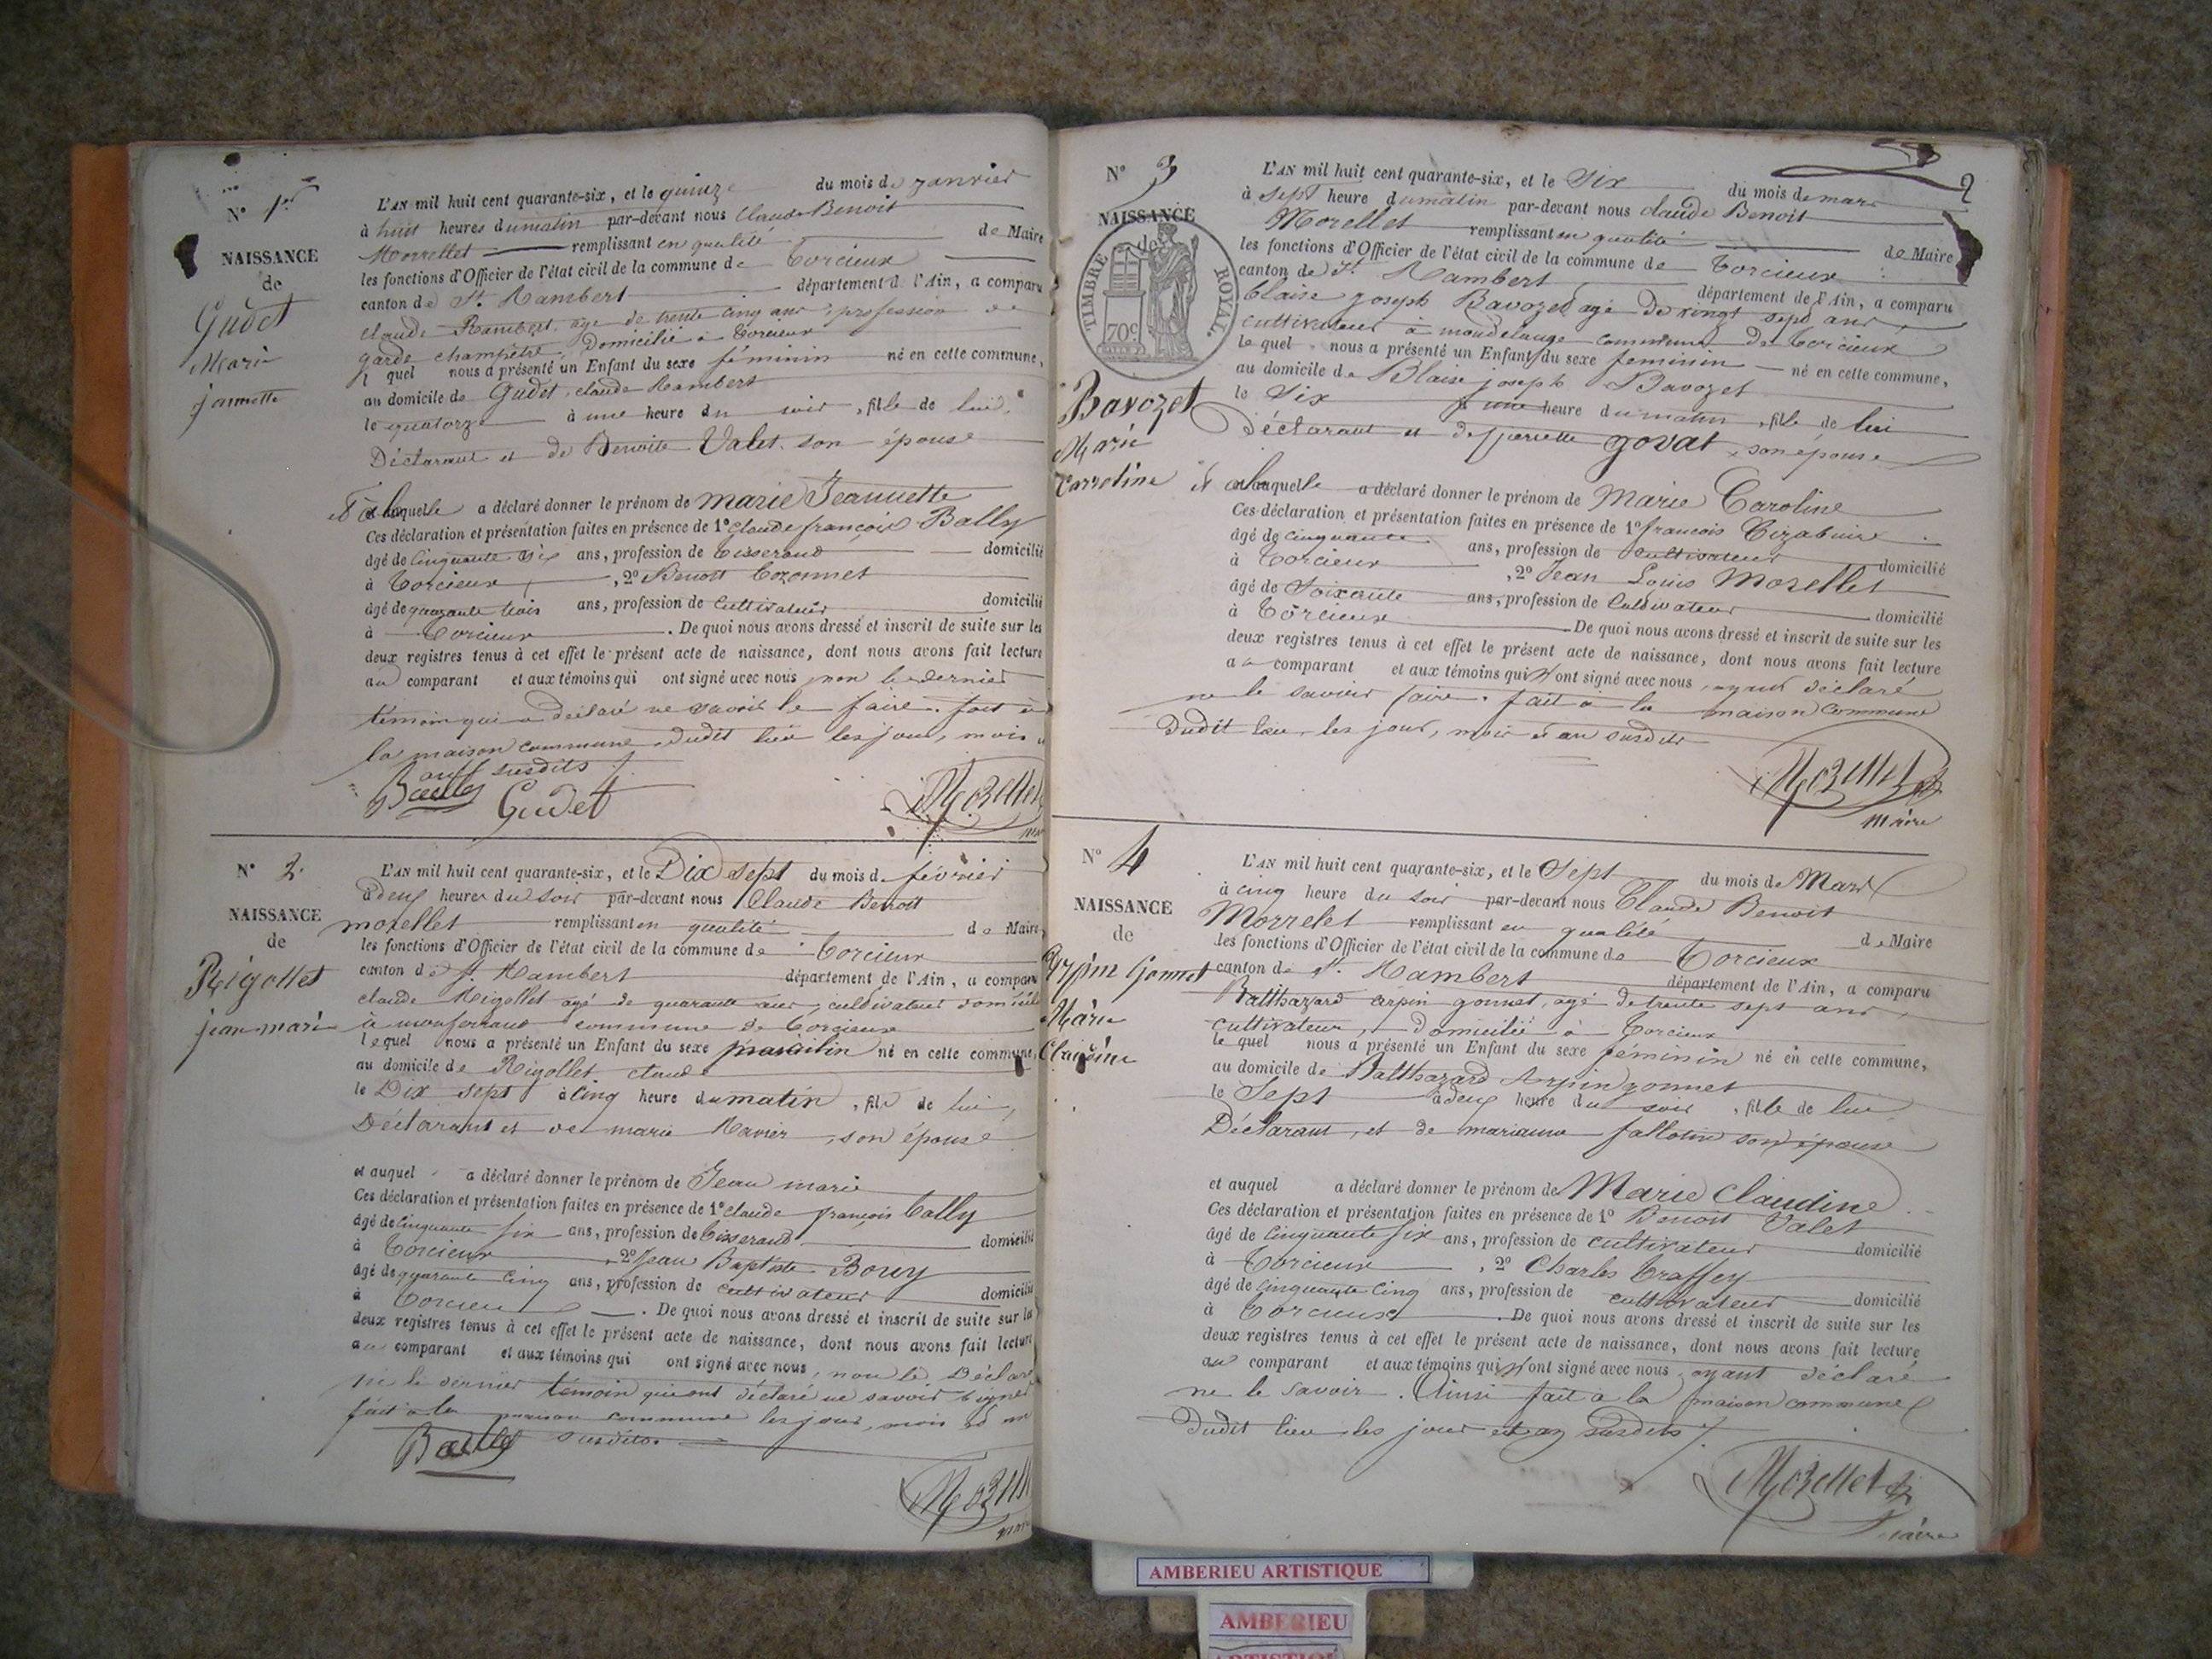 N° 1er
NAISSANCE
de
Gudet
Marie
jannette
L'AN mil huit cent quarante-six, et le quinze du mois de janvier
à huit heures du matin par-devant nous Claude Benoit
Morrellet remplissant en qualité de Maire
les fonctions d'Officier de l'état civil de la commune de Torcieux
canton de St. Rambert département de l'Ain, a comparu
claude Rambert, age de trente cinq ans, profession de
garde champêtre, Domicilié à Torcieux
lequel nous a présenté un Enfant du sexe féminin né en cette commune,
au domicile de Gudet, claude Rambert
le quatorze à une heure du soir, fille de lui,
Déclarant et de Benoite Valet son épouse
et à laquelle a déclaré donner le prénom de marie Jeannette
Ces déclaration et présentation faites en présence de 1° Claude françois Bally
âgé de Cinquante six ans, profession de Tisserand domicilié
à Torcieux, 2° Benoit Cozonnet
âgé de quarante trois ans, profession de Cultivateur domicilié
à Torcieux. De quoi nous avons dressé et inscrit de suite sur les
deux registres tenus à cet effet le présent acte de naissance, dont nous avons fait lecture
au comparant et aux témoins qui ont signé avec nous, non le dernier
témoin qui a déclaré ne savoir le faire. fait à
la maison commune dudit lieu les jour, mois
susdits
Bailly Gudet Mozellet
N° 2
NAISSANCE
de
Rigollet
jean-marie
L'AN mil huit cent quarante-six, et le Dix sept du mois de février
à deux heures du soir par-devant nous Claude Benoit
mozellet remplissant en qualité de Maire
les fonctions d'Officier de l'état civil de la commune de Torcieux
canton de St Rambert département de l'Ain, a comparu
claude Rigollet agé de quarante ans, cultivateur domicilié
à monferrand commune de Torcieux
lequel nous a présenté un Enfant du sexe masculin né en cette commune,
au domicile de Rigollet claude
le Dix sept à Cinq heure du matin, fils de lui,
Déclarant et de marie Ravier, son épouse
et auquel a déclaré donner le prénom de Jean marie
Ces déclaration et présentation faites en présence de 1° claude françois Bally
âgé de cinquante six ans, profession de Tisserand domicilié
à Torcieux, 2° Jean Baptiste Bouvy
âgé de quarante cinq ans, profession de cultivateur domicilié
à Torcieux. De quoi nous avons dressé et inscrit de suite sur les
deux registres tenus à cet effet le présent acte de naissance, dont nous avons fait lecture
au comparant et aux témoins qui ont signé avec nous, non le Déclarant
ni le dernier témoin qui ont déclaré ne savoir signer
fait à la maison commune les jour, mois et an
susdits.
Bailly
N° 3
NAISSANCE
de
TIMBRE ROYAL
70c
Bavozet
Marie
Carroline
L'AN mil huit cent quarante-six, et le Six du mois de mars
à sept heure du matin par-devant nous claude Benoit
Morellet remplissant en qualité de Maire
les fonctions d'Officier de l'état civil de la commune de Torcieux
canton de St. Rambert département de l'Ain, a comparu
blaise joseph Bavozet agé de vingt sept ans,
cultivateur à montdelange commune de Torcieux
lequel nous a présenté un Enfant du sexe féminin né en cette commune,
au domicile de Blaise joseph Bavozet
le Six à une heure du matin, fille de lui
déclarant et de pierrette govat, son épouse
et à laquelle a déclaré donner le prénom de Marie Caroline
Ces déclaration et présentation faites en présence de 1° francois
âgé de cinquante ans, profession de cultivateur domicilié
à Torcieux, 2° Jean Louis Mozellet
âgé de Soixante ans, profession de Cultivateur domicilié
à Torcieux. De quoi nous avons dressé et inscrit de suite sur les
deux registres tenus à cet effet le présent acte de naissance, dont nous avons fait lecture
au comparant et aux témoins qui n'ont signé avec nous, ayant déclaré
ne le savoir faire. fait à la maison commune
dudit lieu, les jour, mois et an susdits
Mozellet
maire
N° 4
NAISSANCE
de
Arpin Gonnet
Marie
Claudine
L'AN mil huit cent quarante-six, et le Sept du mois de Mars
à cinq heure du soir par-devant nous Claude Benoit
Morrelet remplissant en qualité de Maire
les fonctions d'Officier de l'état civil de la commune de Torcieux
canton de St. Rambert département de l'Ain, a comparu
Balthazard arpin gonnet, agé de trente sept ans,
cultivateur, domicilié à Torcieux
lequel nous a présenté un Enfant du sexe féminin né en cette commune,
au domicile de Balthazard Arpin gonnet
le Sept à deux heure du soir, fille de lui
Déclarant, et de marianne fallotin son épouse
et auquel a déclaré donner le prénom de Marie Claudine
Ces déclaration et présentation faites en présence de 1° Benoit Valet
âgé de Cinquante six ans, profession de cultivateur domicilié
à Torcieux, 2° Charles Traffey
âgé de Cinquante Cinq ans, profession de cultivateur domicilié
à Torcieux. De quoi nous avons dressé et inscrit de suite sur les
deux registres tenus à cet effet le présent acte de naissance, dont nous avons fait lecture
au comparant et aux témoins qui n'ont signé avec nous ayant déclaré
ne le savoir. Ainsi fait à la maison commune
dudit lieu les jour et an susdits
Mozellet
maire
AMBERIEU ARTISTIQUE
AMBERIEU
ARTISTIQUE